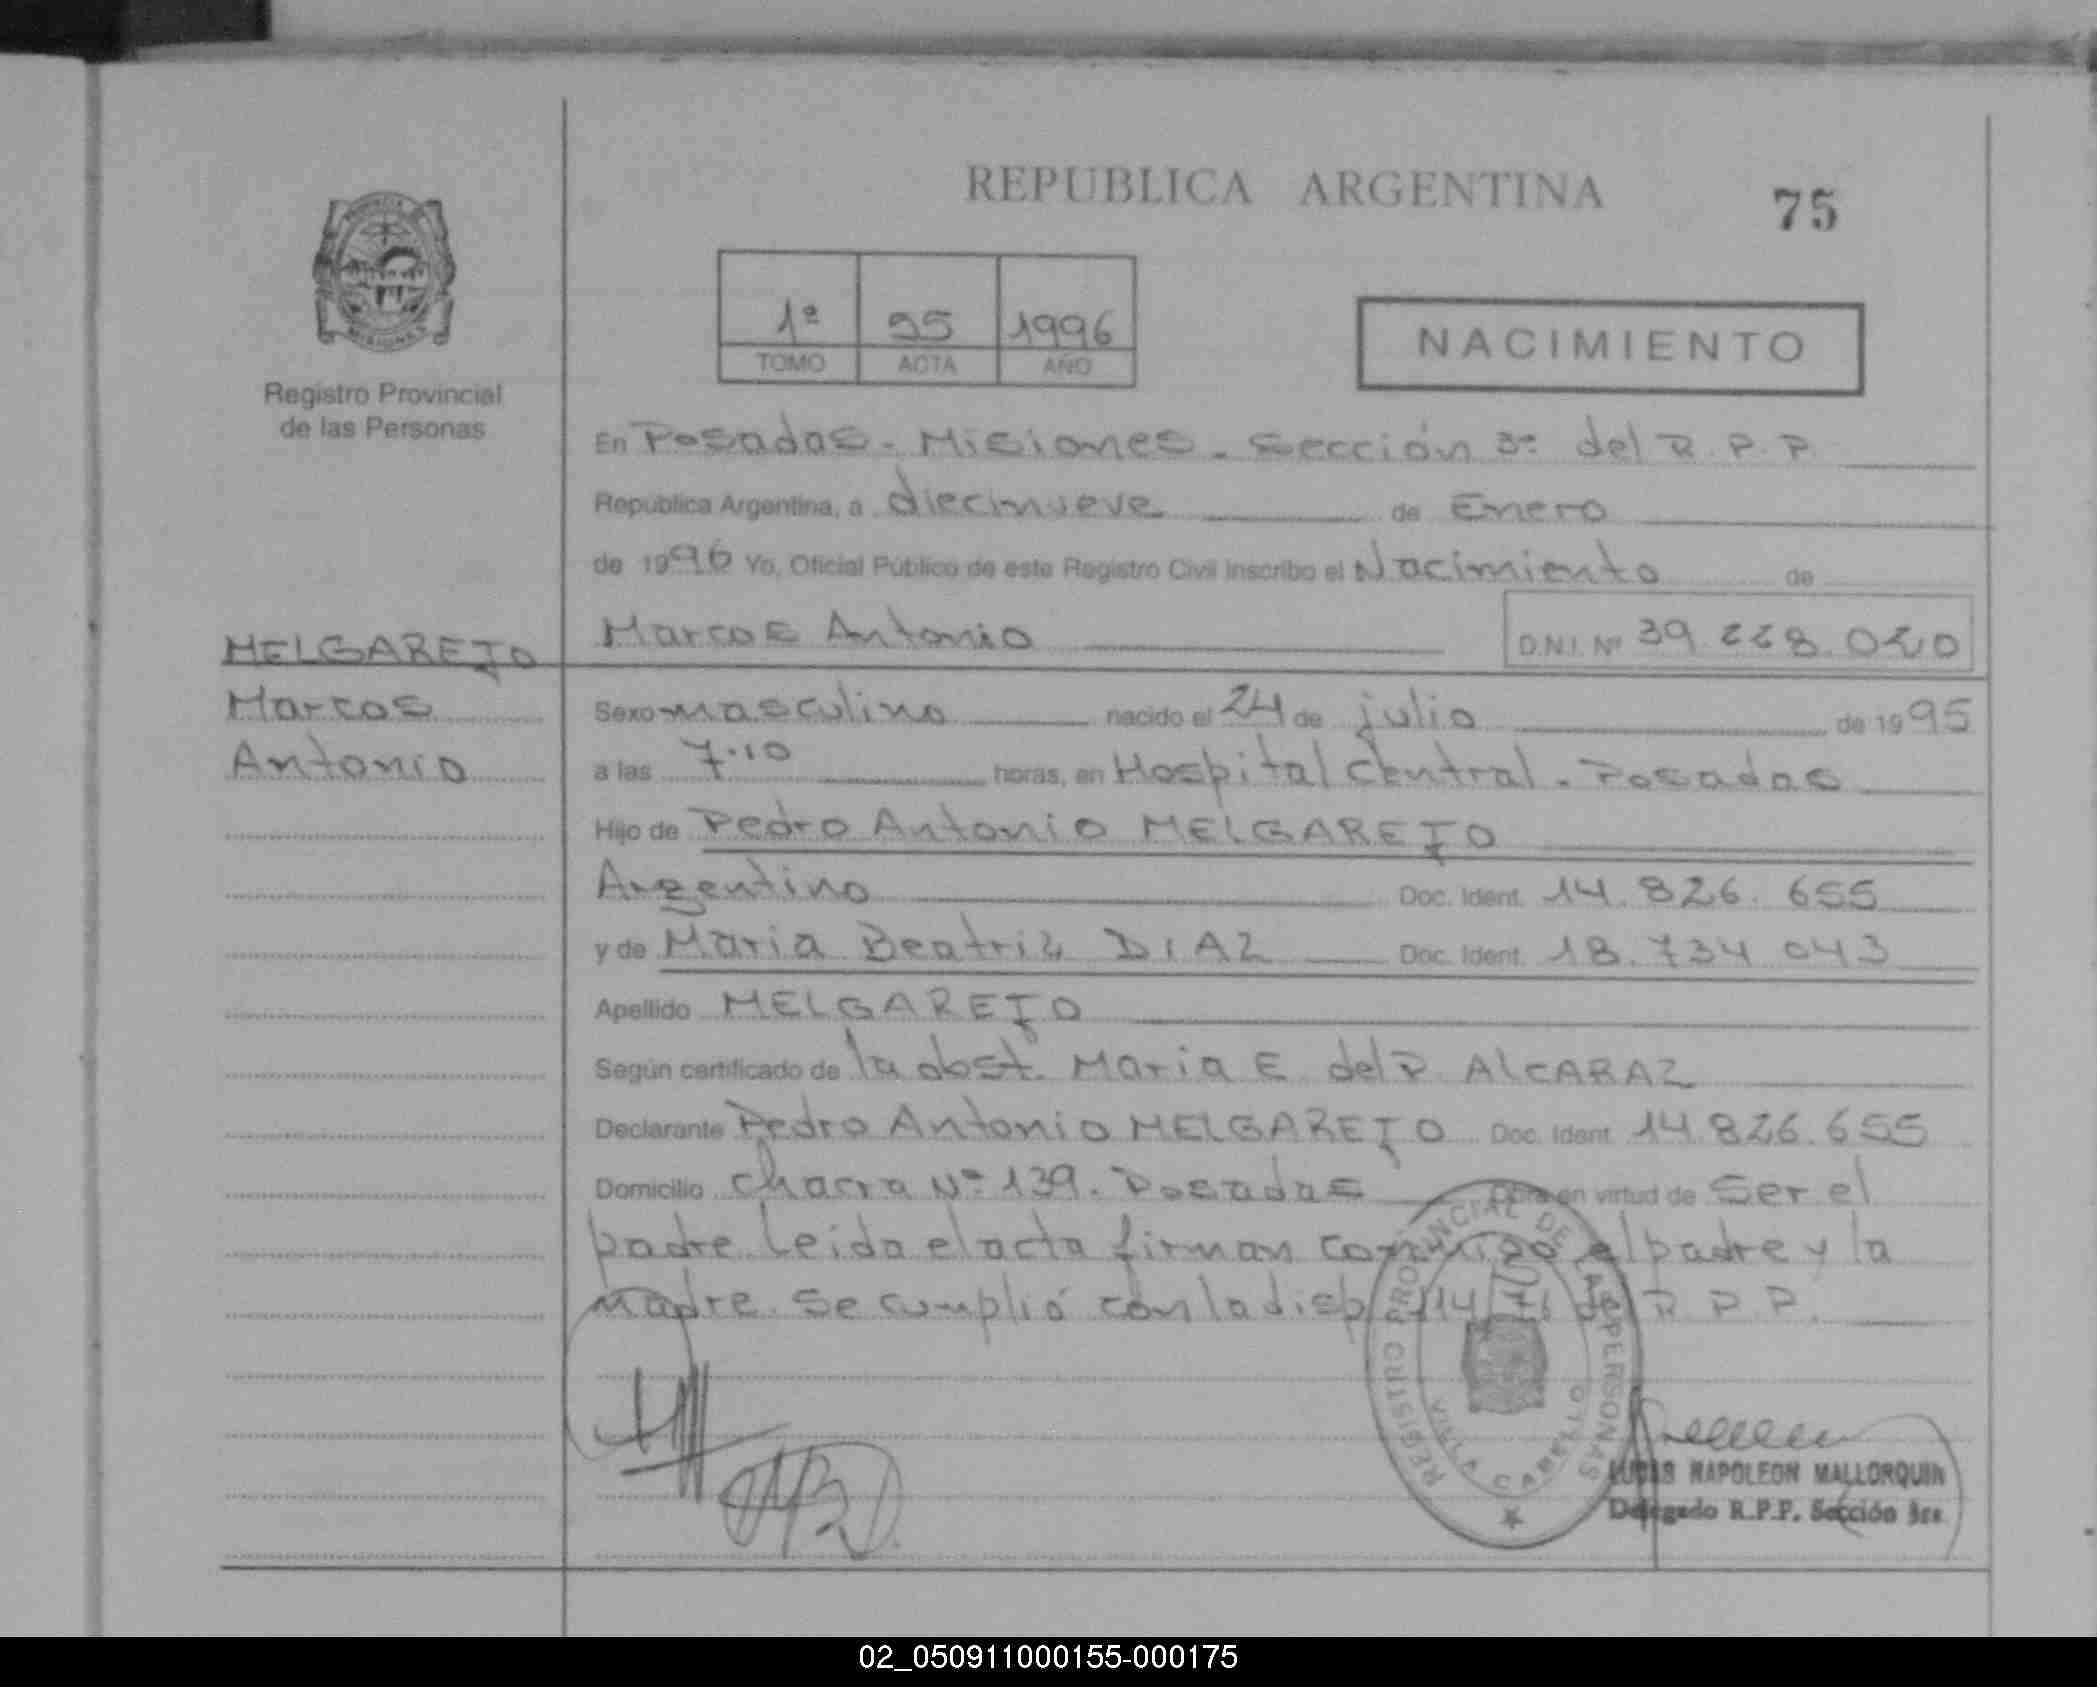 REPUBLICA ARGENTINA
75
1º 95 1996
TOMO ACTA AÑO
NACIMIENTO
PROVINCIA DE MISIONES
Registro Provincial
de las Personas
En Posadas - Misiones - Sección 3ª del R.P.P.
Republica Argentina, a diecinueve de Enero
de 1996 Yo, Oficial Público de este Registro Civil inscribo el Nacimiento de
Marcos Antonio D.N.I. Nº 39.228.020
MELGAREJO
Marcos
Antonio
Sexo masculino nacido el 24 de julio de 1995
a las 7.10 horas, en Hospital Central - Posadas
Hijo de Pedro Antonio MELGAREJO
Argentino Doc. Ident. 14.826.655
y de Maria Beatriz DIAZ Doc. Ident. 18.734.043
Apellido MELGAREJO
Según certificado de la obst. Maria E. del P. ALCARAZ
Declarante Pedro Antonio MELGAREJO Doc. Ident. 14.826.655
Domicilio chacra Nº 139. Posadas Obra en virtud de Ser el
padre. Leida el acta firman conmigo el padre y la
Madre. Se cumplió con la disp. 114/76 del R.P.P.
REGISTRO PROVINCIAL DE LAS PERSONAS
VILLA CABELLO
LUCAS NAPOLEON MALLORQUIN
Delegado R.P.P. Sección 3ra.
02_050911000155-000175